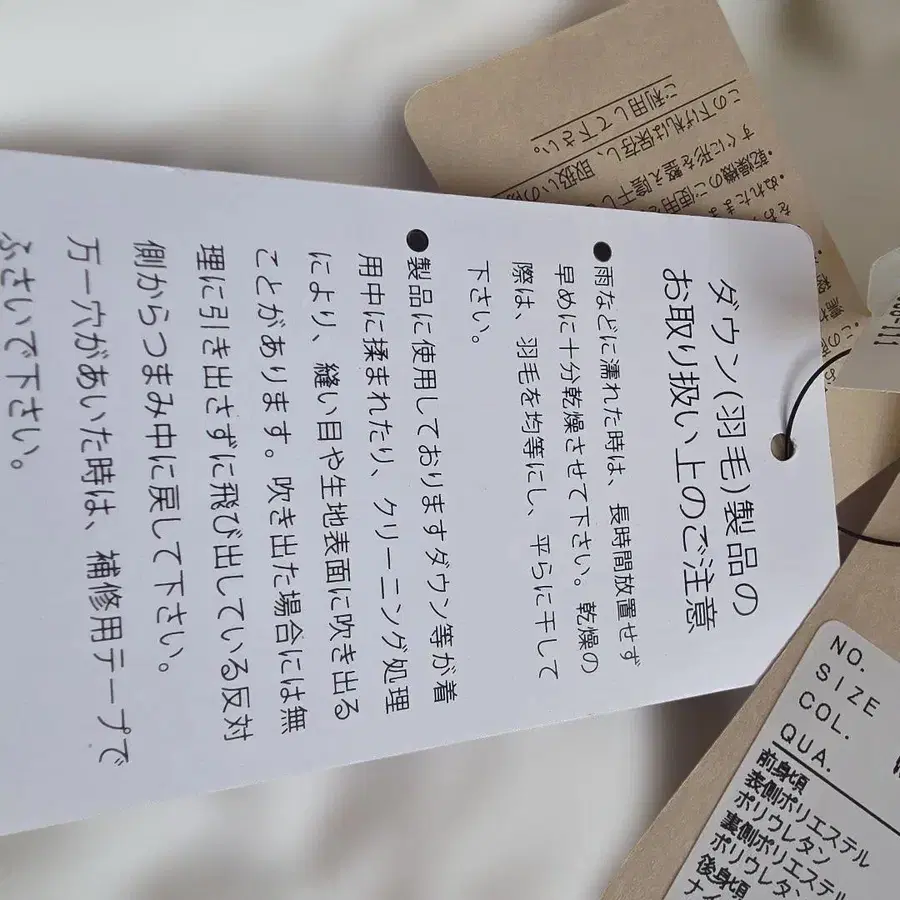 ダウン(羽毛)製品の
お取り扱い上のご注意
●雨などに濡れた時は、長時間放置せず
早めに十分乾燥させて下さい。乾燥の
際は、羽毛を均等にし、平らに干して
下さい。
●製品に使用しておりますダウン等が着
用中に揉まれたり、クリーニング処理
により、縫い目や生地表面に吹き出る
ことがあります。吹き出た場合には無
理に引き出さずに飛び出している反対
側からつまみ中に戻して下さい。
万一穴があいた時は、補修用テープで
ふさいで下さい。
・ぬれたまま
・乾燥機のご使用
すぐに形を整え陰干し
取扱いの
この下げ札は保存し、
ご利用して下さい。
NO.
SIZE
COL.
QUA.
前身頃
表側ポリエステル
ポリウレタン
裏側ポリエステル
ポリウレタ
後身頃